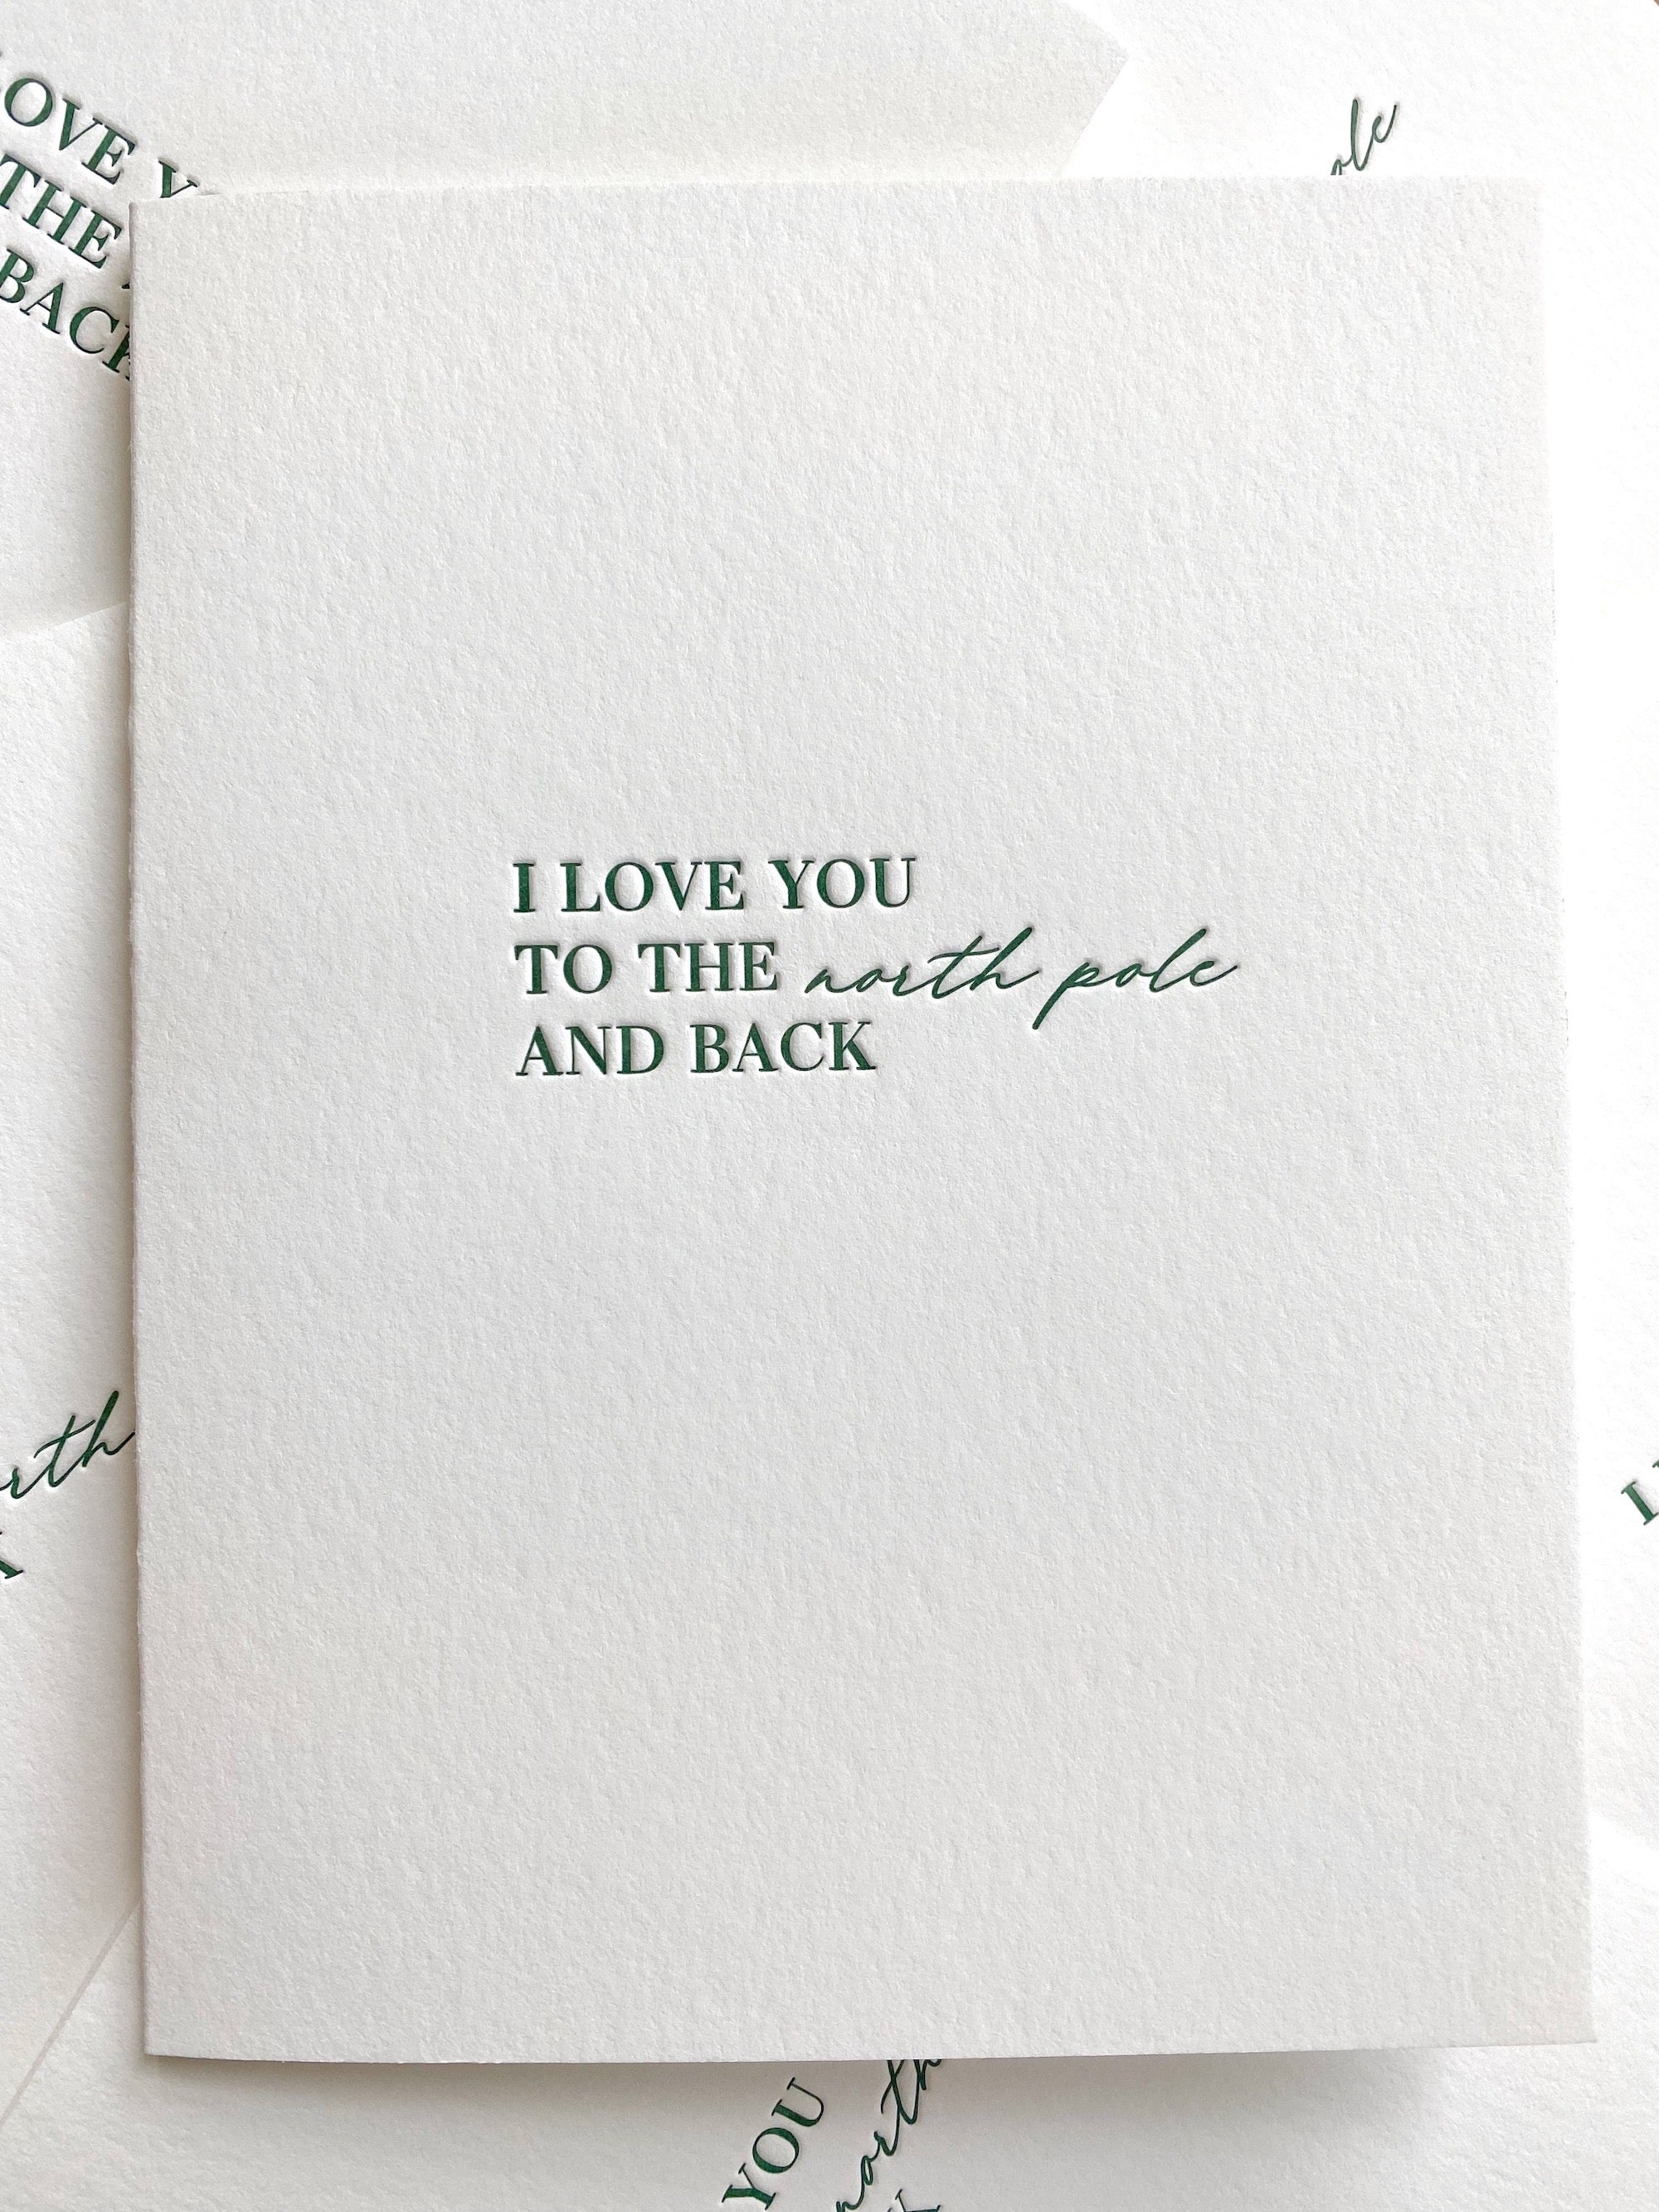 I LOVE YOU
TO THE north pole
AND BACK
THE
BACK
YOU
north